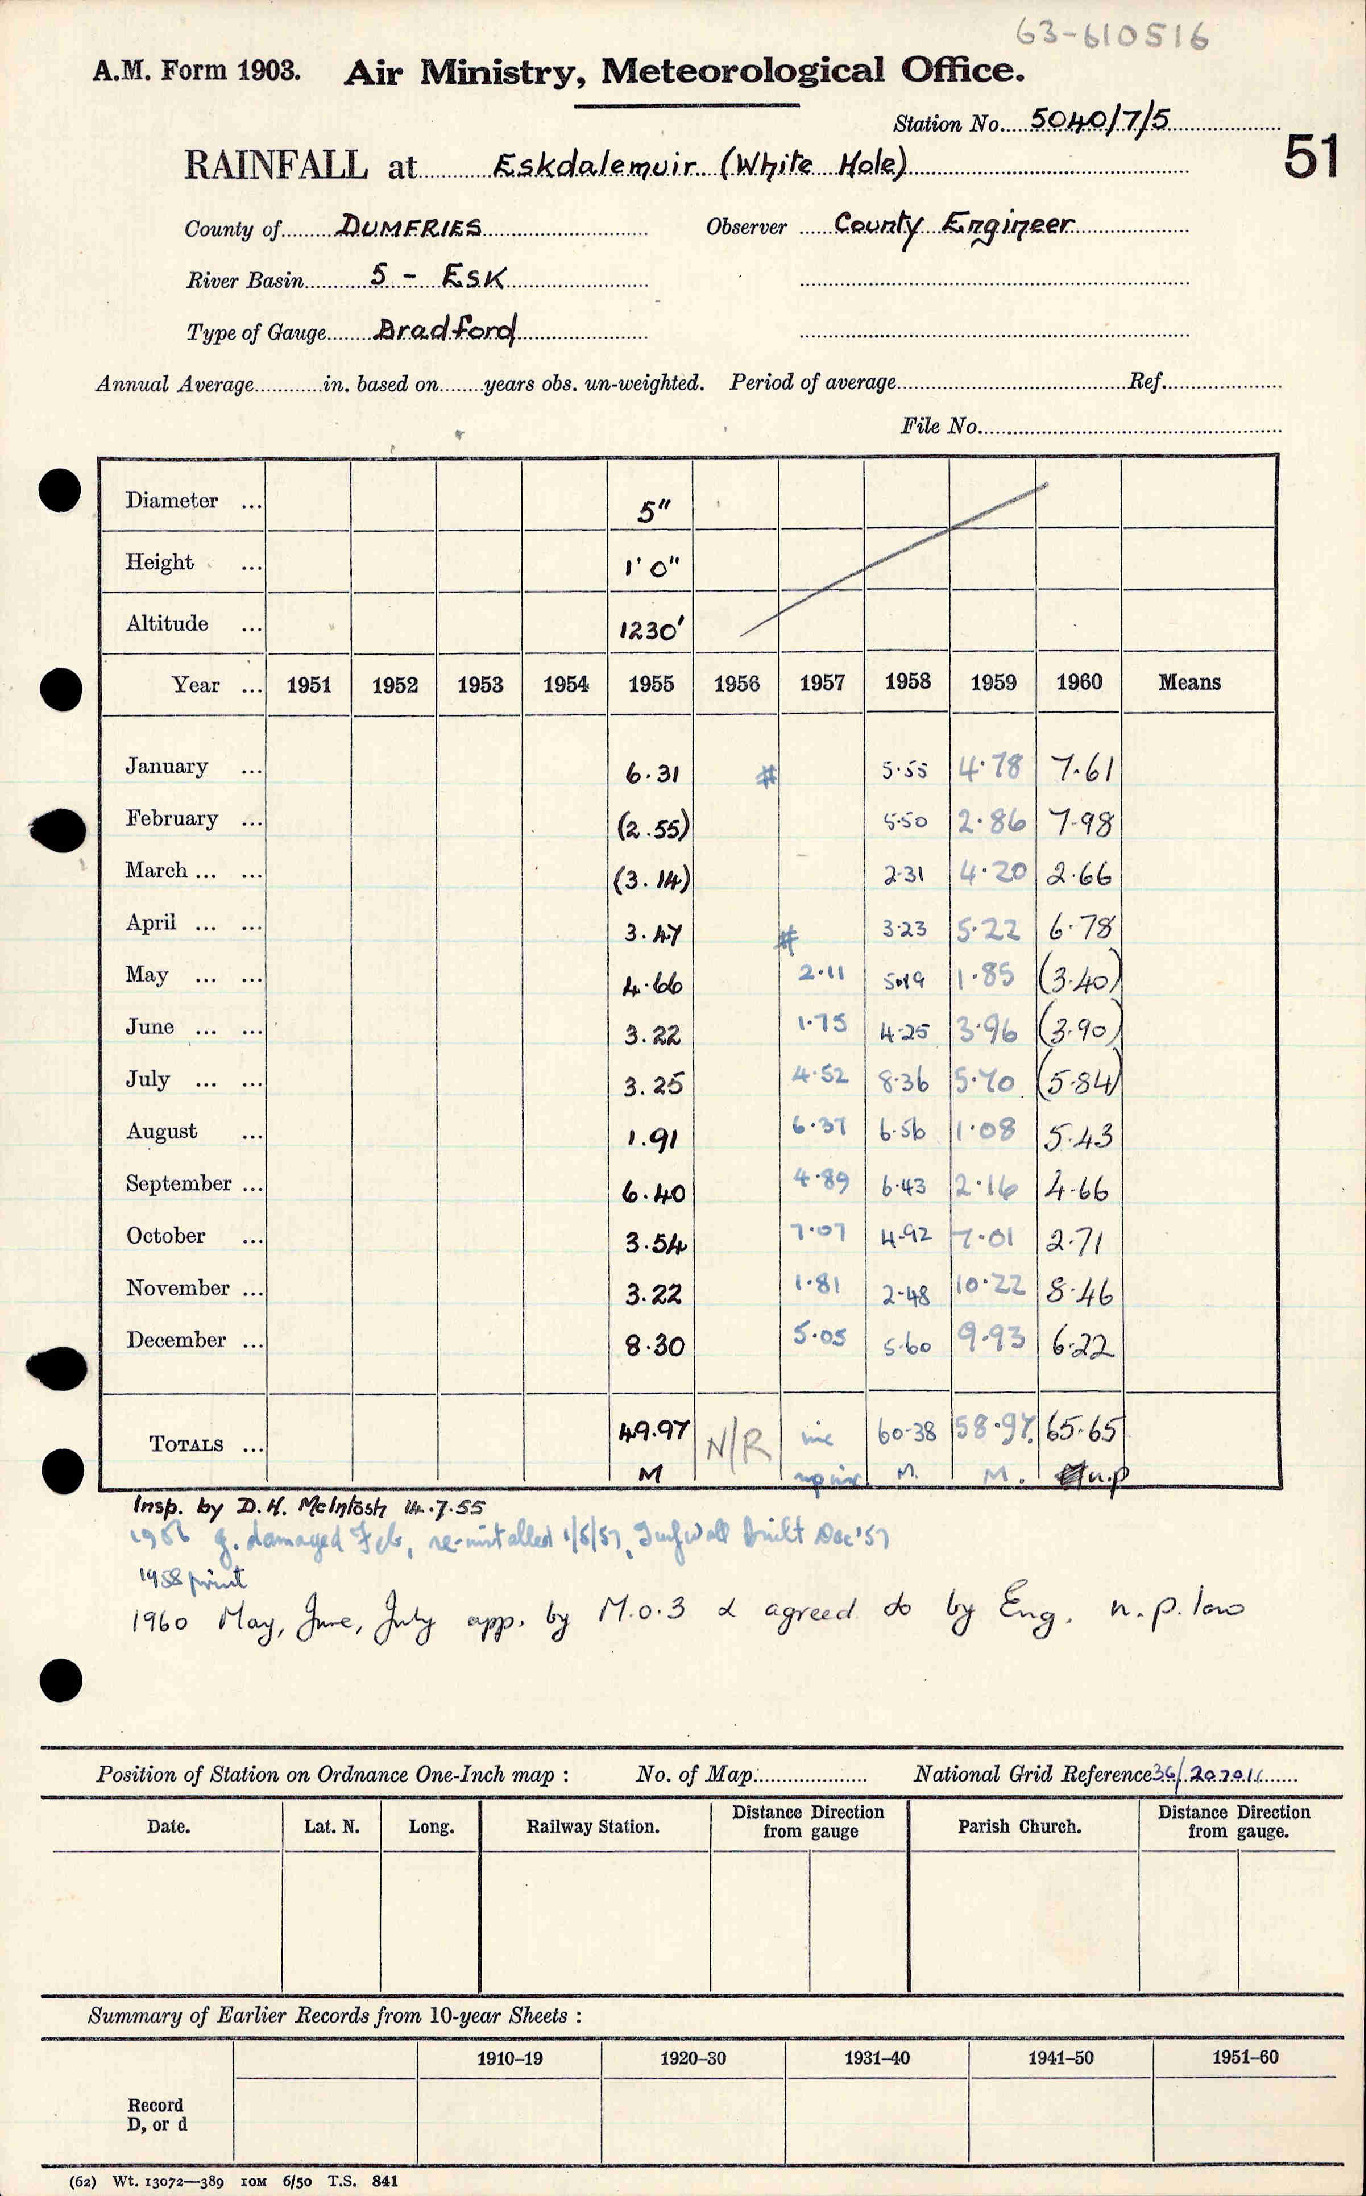 63-610516
A.M. Form 1903. Air Ministry, Meteorological Office.
Station No. 5040/7/5
51
RAINFALL at Eskdalemuir (White Hole)
County of DUMFRIES Observer County Engineer
River Basin 5 - ESK
Type of Gauge Bradford
Annual Average in. based on years obs. un-weighted. Period of average Ref.
File No.
Diameter ... 5"
Height ... 1' 0"
Altitude ... 1230'
Year ... 1951 1952 1953 1954 1955 1956 1957 1958 1959 1960 Means
January ... 6.31 # 5.55 4.78 7.61
February ... (2.55) 5.50 2.86 7.98
March ... ... (3.14) 2.31 4.20 2.66
April ... ... 3.47 # 3.23 5.22 6.78
May ... ... 4.66 2.11 5.19 1.85 (3.40)
June ... ... 3.22 1.75 4.25 3.96 (3.90)
July ... ... 3.25 4.52 8.36 5.70 (5.84)
August ... 1.91 6.37 6.56 1.08 5.43
September ... 6.40 4.89 6.43 2.16 4.66
October ... 3.54 7.07 4.92 7.01 2.71
November ... 3.22 1.81 2.48 10.22 8.46
December ... 8.30 5.05 5.60 9.93 6.22
TOTALS ... 49.97 N/R inc 60.38 58.97. 65.65
M M. M. n.p
Insp. by D.H. McIntosh 14.7.55
1956 g. damaged Feb, re-installed 1/5/57, Turf wall built Dec '57
1958 print
1960 May, June, July app. by M.O.3 & agreed do by Eng. n.p. low
Position of Station on Ordnance One-Inch map : No. of Map National Grid Reference 36/
Date. Lat. N. Long. Railway Station. Distance Direction from gauge Parish Church. Distance Direction from gauge.
Summary of Earlier Records from 10-year Sheets :
1910–19 1920–30 1931–40 1941–50 1951–60
Record
D, or d
(62) Wt. 13072—389 10M 6/50 T.S. 841